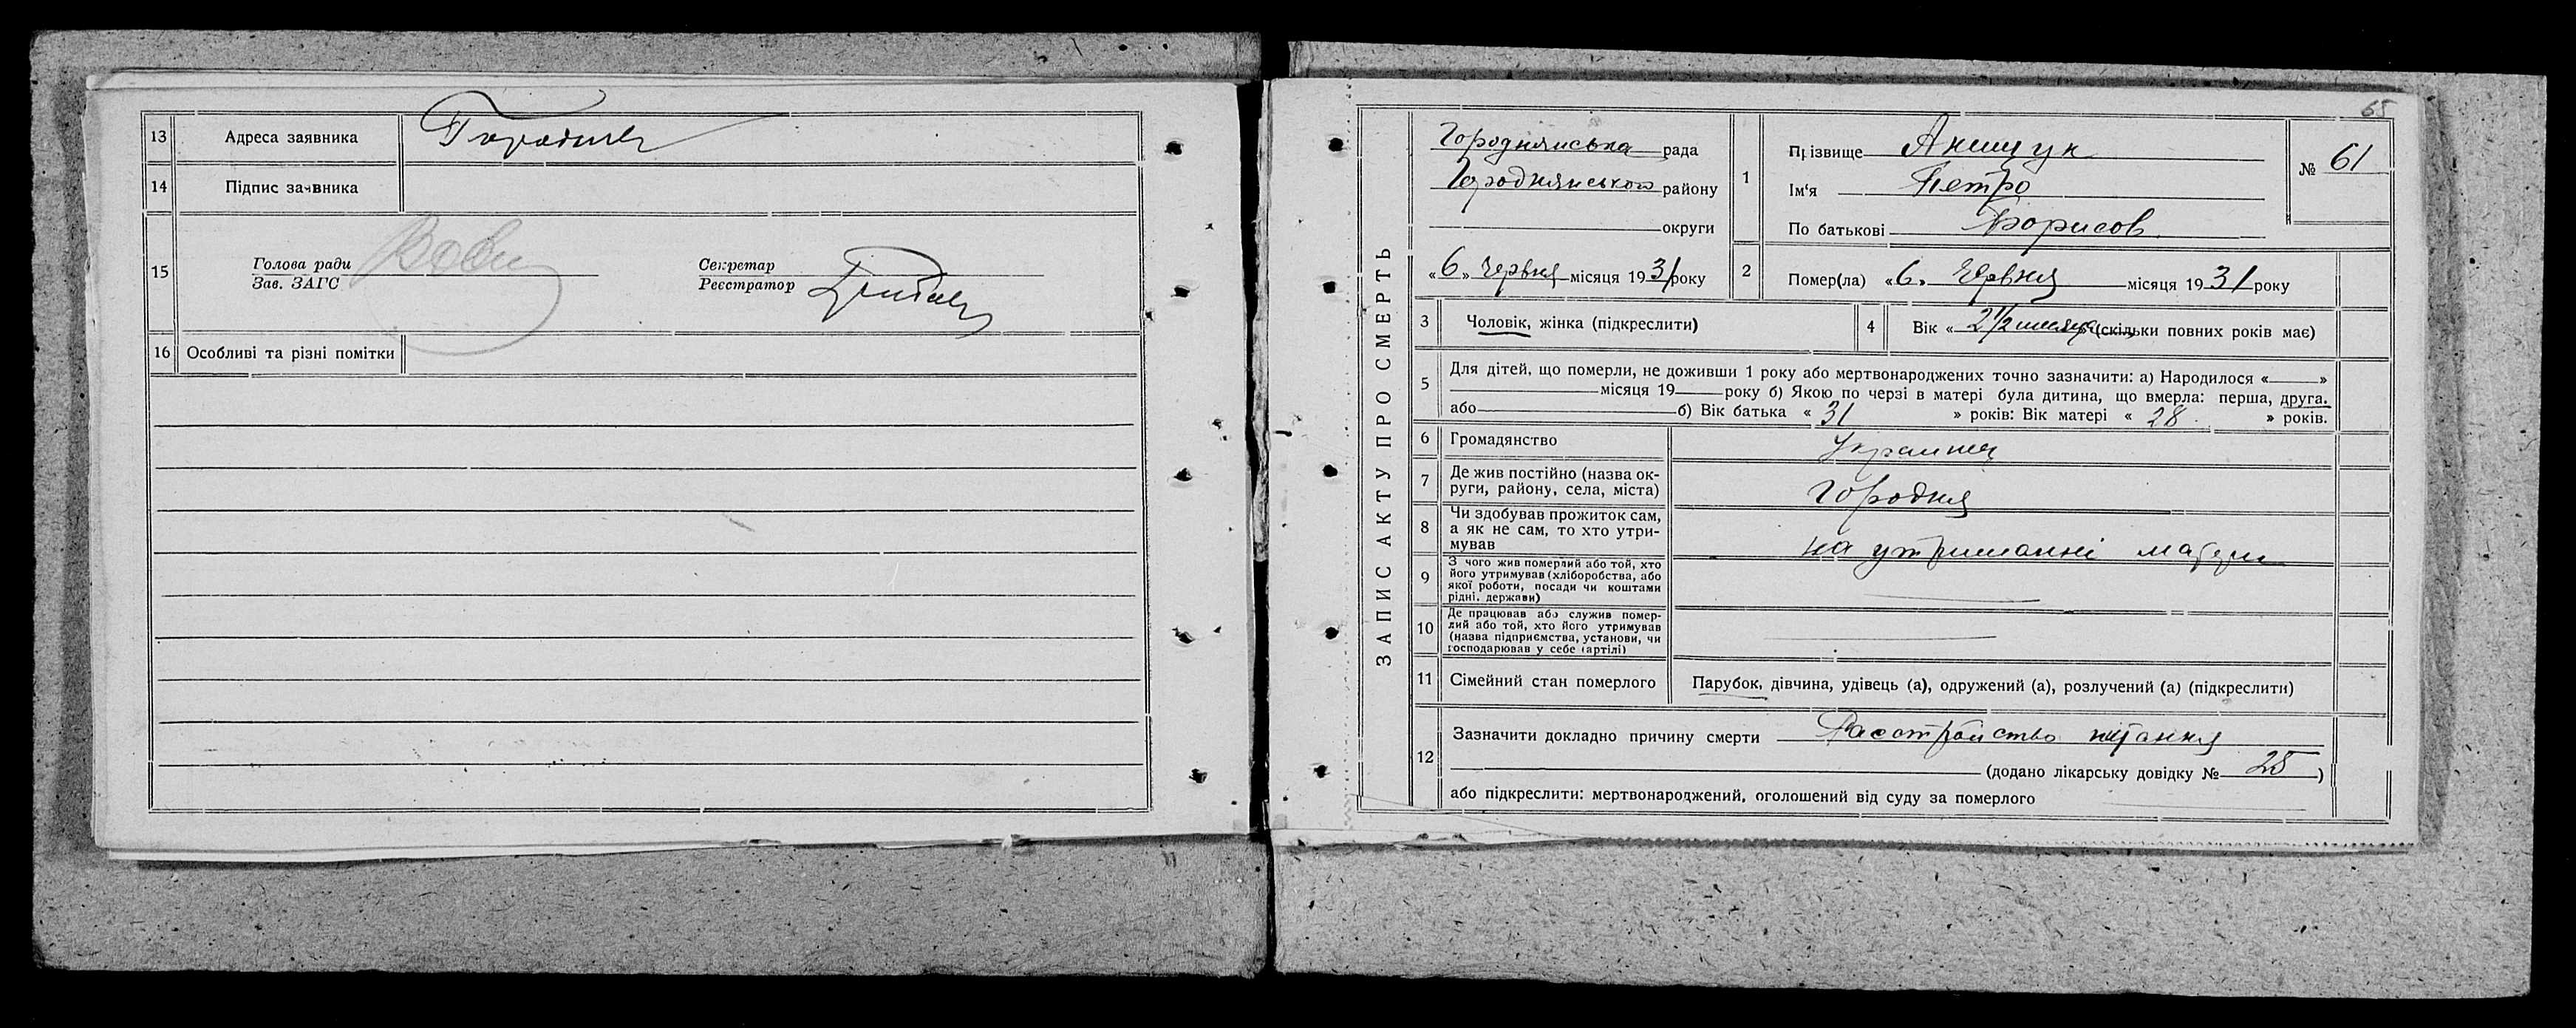 13 Адреса заявника Городня
14 Підпис заявника
15 Голова ради
Зав. ЗАГС
Секретар
Реєстратор
16 Особливі та різні помітки
65
ЗАПИС АКТУ ПРО СМЕРТЬ
Городнянська рада
Городнянського району
округи
«6» червня місяця 1931 року
1 Прізвище Анищук
Ім'я Петро
По батькові Борисов
№ 61
2 Помер(ла) «6» червня місяця 1931 року
3 Чоловік, жінка (підкреслити)
4 Вік « 2 1/2 месяца (скільки повних років має)
5 Для дітей, що померли, не доживши 1 року або мертвонароджених точно зазначити: а) Народилося « »
місяця 19 року б) Якою по черзі в матері була дитина, що вмерла: перша, друга.
або б) Вік батька « 31 » років: Вік матері « 28 » років.
6 Громадянство Украинец
7 Де жив постійно (назва ок-
руги, району, села, міста) Городня
8 Чи здобував прожиток сам,
а як не сам, то хто утри-
мував на утриманні матери
9 З чого жив померлий або той, хто
його утримував (хліборобства, або
якої роботи, посади чи коштами
рідні, держави)
10 Де працював або служив помер-
лий або той, хто його утримував
(назва підприємства, установи, чи
господарював у себе (артілі)
11 Сімейний стан померлого Парубок, дівчина, удівець (а), одружений (а), розлучений (а) (підкреслити)
12 Зазначити докладно причину смерти Расстройство питання
(додано лікарську довідку № 25 )
або підкреслити: мертвонароджений, оголошений від суду за померлого